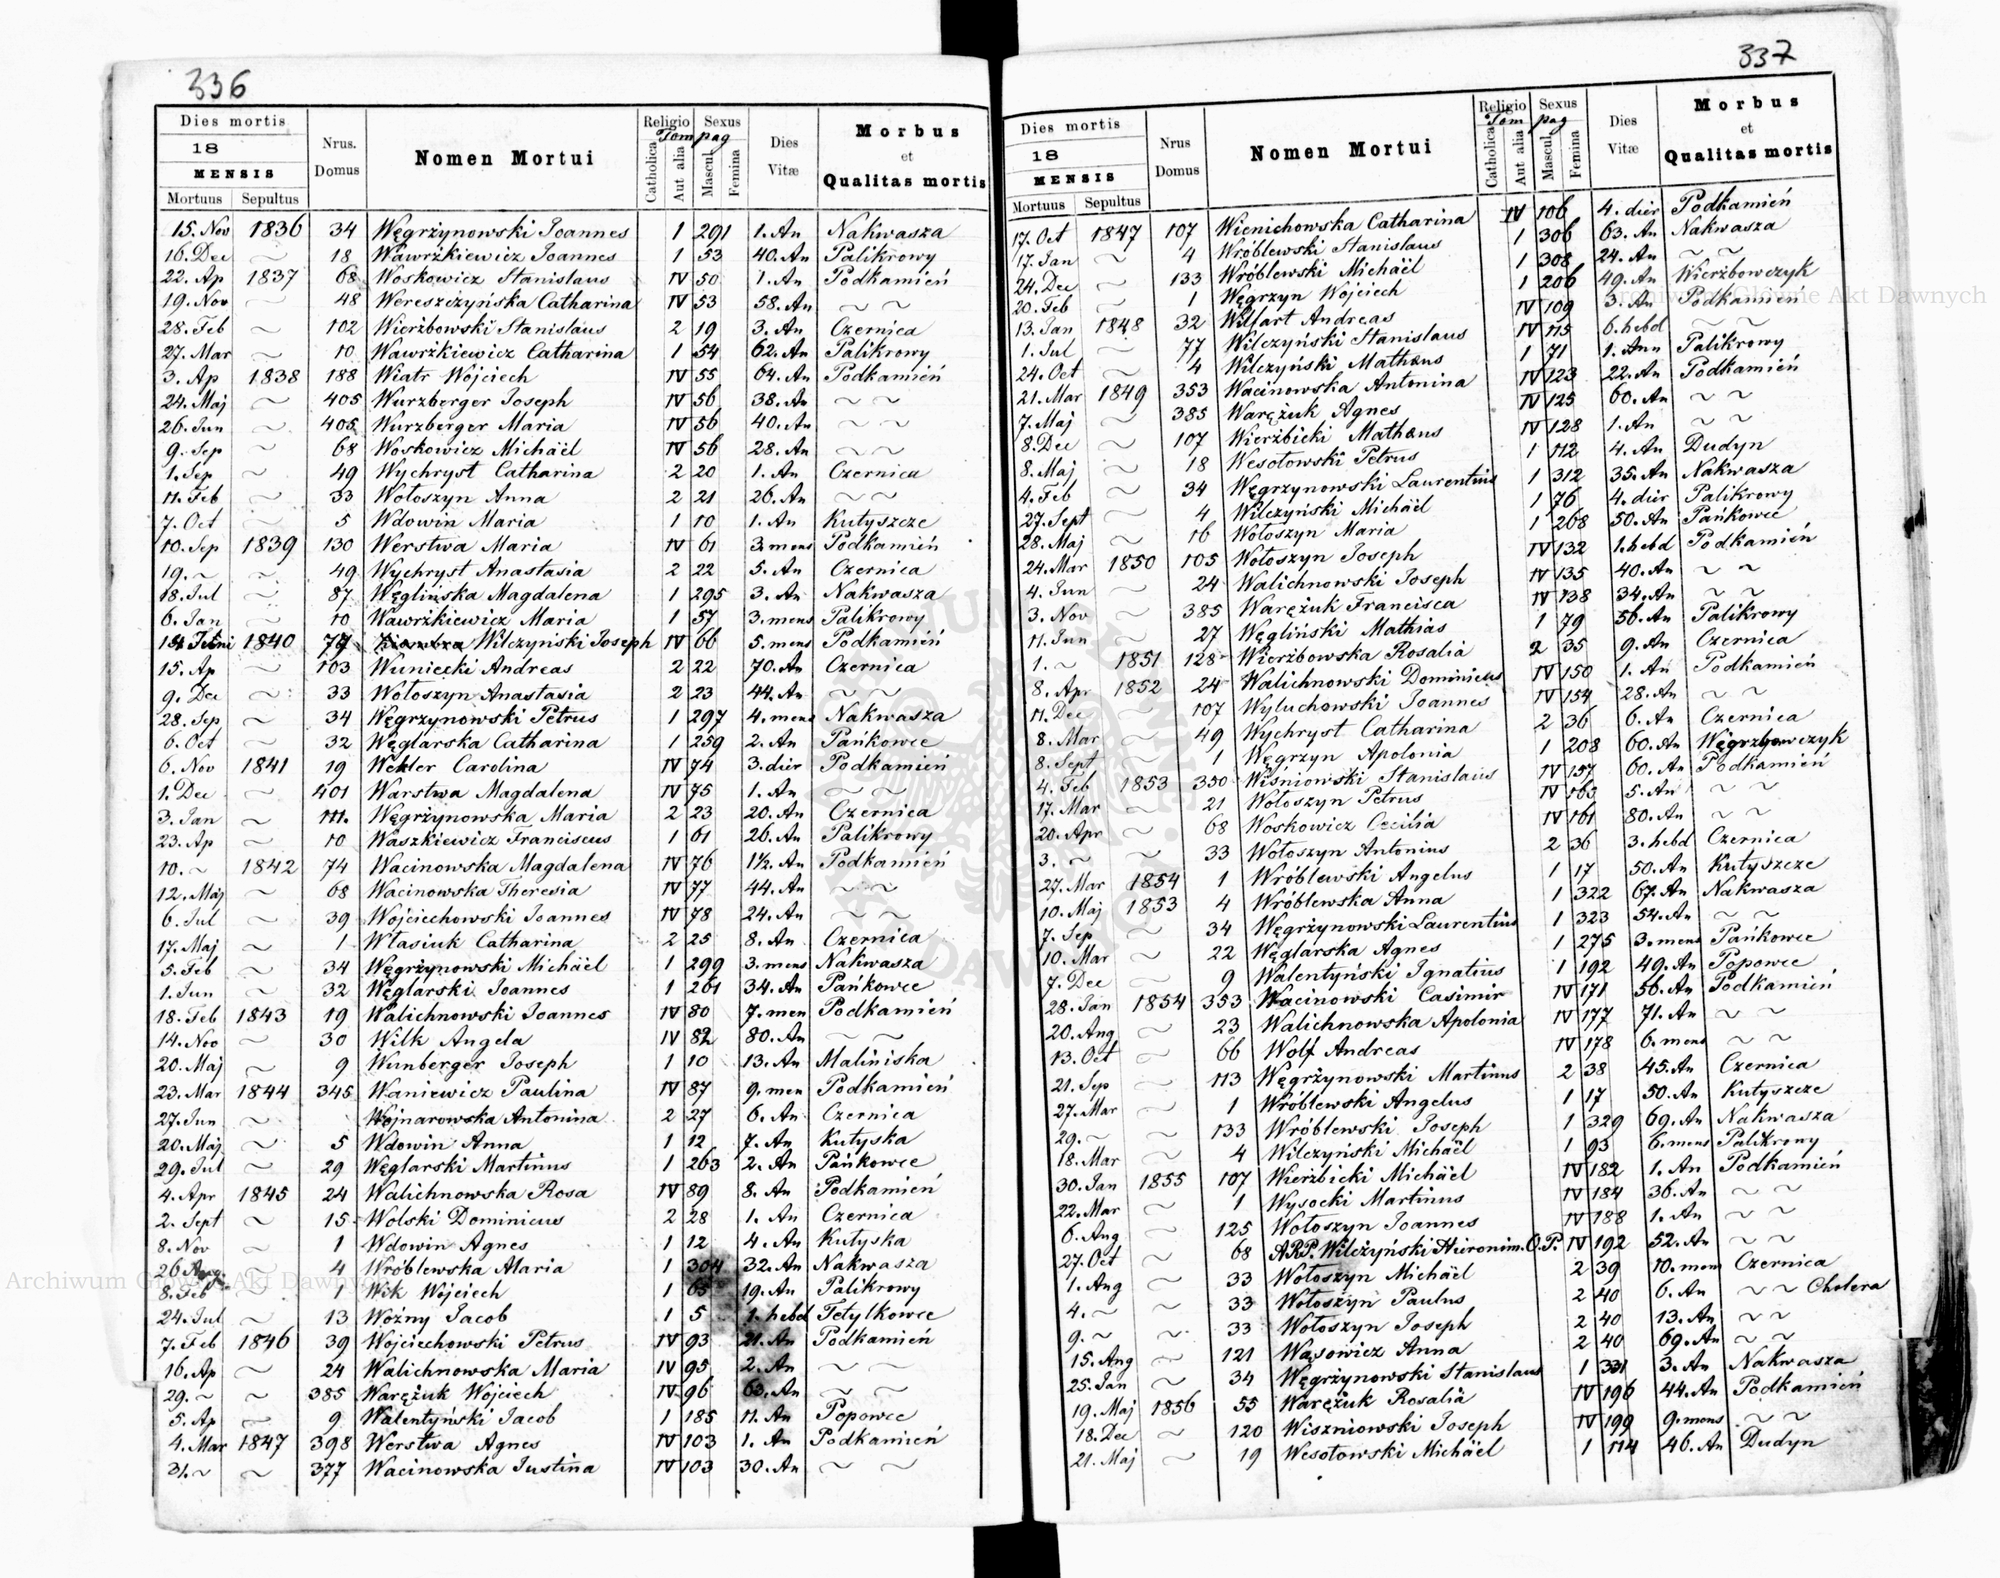 336
Dies mortis
18
MENSIS
Mortuus Sepultus
Nrus. Domus
Nomen Mortui
Religio Sexus
Tom pag
Catholica Aut alia Mascul. Femina
Dies Vitæ
Morbus et Qualitas mortis
15. Nov 1836 34 Węgrżynowski Joannes 1 291 1. An Nakwasza
16. Dec ~ 18 Wawrżkiewicz Joannes 1 53 40. An Palikrowy
22. Ap 1837 68 Woskowicz Stanislaus IV 50 1. An Podkamień
19. Nov ~ 48 Wereszczyńska Catharina IV 53 58. An ~ ~
28. Feb ~ 102 Wierżbowski Stanislaus 2 19 3. An Czernica
27. Mar ~ 10 Wawrżkiewicz Catharina 1 54 62. An Palikrowy
3. Ap 1838 188 Wiatr Wojciech IV 55 64. An Podkamień
24. Maj ~ 405 Wurzberger Joseph IV 56 38. An ~ ~
26. Jun ~ 405 Wurzberger Maria IV 56 40. An ~ ~
9. Sep ~ 68 Woskowicz Michäel IV 56 28. An ~ ~
1. Sep ~ 49 Wychryst Catharina 2 20 1. An Czernica
11. Feb ~ 33 Wołoszyn Anna 2 21 26. An ~ ~
7. Oct ~ 5 Wdowin Maria 1 10 1. An Kutyszcze
10. Sep 1839 130 Werstwa Maria IV 61 3. mens Podkamień
19. ~ ~ 49 Wychryst Anastasia 2 22 5. An Czernica
18. Jul ~ 87 Węglińska Magdalena 1 295 3. An Nakwasza
6. Jan ~ 10 Wawrżkiewicz Maria 1 57 3. mens Palikrowy
1840 77 Wilczyński Joseph IV 66 5. mens Podkamień
15. Ap ~ 103 Wuniecki Andreas 2 22 70. An Czernica
9. Dec ~ 33 Wołoszyn Anastasia 2 23 44. An ~ ~
28. Sep ~ 34 Węgrzynowski Petrus 1 297 4. mens Nakwasza
6. Oct ~ 32 Węglarska Catharina 1 259 2. An Pańkowce
6. Nov 1841 19 Wekler Carolina IV 74 3. dier Podkamień
1. Dec ~ 401 Warstwa Magdalena IV 75 1. An ~ ~
3. Jan ~ 111. Węgrżynowska Maria 2 23 20. An Czernica
23. Ap ~ 10 Waszkiewicz Franciscus 1 61 26. An Palikrowy
10. ~ 1842 74 Wacinowska Magdalena IV 76 1½. An Podkamień
12. Maj ~ 68 Wacinowska Theresia IV 77 44. An ~ ~
6. Jul ~ 39 Wojciechowski Joannes IV 78 24. An ~ ~
17. Maj ~ 1 Własiuk Catharina 2 25 8. An Czernica
5. Feb ~ 34 Węgrżynowski Michäel 1 299 3. mens Nakwasza
1. Jun ~ 32 Węglarski Joannes 1 261 34. An Pańkowce
18. Feb 1843 19 Walichnowski Joannes IV 80 7. men Podkamień
14. Nov ~ 30 Wilk Angela IV 82 80. An ~ ~
20. Maj ~ 9 Wunberger Joseph 1 10 13. An Maliniska
23. Mar 1844 345 Waniewicz Paulina IV 87 9. men Podkamień
27. Jun ~ Wojnarowska Antonina 2 27 6. An Czernica
20. Maj ~ 5 Wdowin Anna 1 12 7. An Kutyska
29. Jul ~ 29 Węglarski Martinus 1 263 2. An Pańkowce
4. Apr 1845 24 Walichnowska Rosa IV 89 8. An Podkamień
2. Sept ~ 15 Wolski Dominicus 2 28 1. An Czernica
8. Nov ~ 1 Wdowin Agnes 1 12 4. An Kutyska
26 Aug. ~ 4 Wróblewska Maria 1 304 32. An Nakwasza
8. Feb ~ 1 Wik Wojciech 1 65 19. An Palikrowy
24. Jul ~ 13 Woźny Jacob 1 5 1. hebd Tetylkowce
7. Feb 1846 39 Wojciechowski Petrus IV 93 21. An Podkamień
16. Ap ~ 24 Walichnowska Maria IV 95 2. An ~ ~
29. ~ ~ 385 Warężuk Wojciech IV 96 63. An ~ ~
5. Ap ~ 9 Walentyński Jacob 1 185 11. An Popowce
4. Mar 1847 398 Werstwa Agnes IV 103 1. An Podkamień
31. ~ ~ 377 Wacinowska Justina IV 103 30. An ~ ~
337
Dies mortis
18
MENSIS
Mortuus Sepultus
Nrus Domus
Nomen Mortui
Religio Sexus
Tom pag
Catholica Aut alia Mascul. Femina
Dies Vitæ
Morbus et Qualitas mortis
17. Oct 1847 107 Wienichowska Catharina IV 106 4. dier Podkamień
17. Jan ~ 4 Wróblewski Stanislaus 1 306 63. An Nakwasza
24. Dec ~ 133 Wróblewski Michäel 1 308 24. An ~ ~
20. Feb ~ 1 Węgrzyn Wojciech 1 206 49. An Wierżbowczyk
13. Jan 1848 32 Wilfart Andreas IV 109 3. An Podkamień
1. Jul ~ 77 Wilczyński Stanislaus IV 115 6. hebd ~ ~
24. Oct ~ 4 Wilczyński Mathæus 1 71 1. Ann Palikrowy
21. Mar 1849 353 Wacinowska Antonina IV 123 22. An Podkamień
7. Maj ~ 385 Warężuk Agnes IV 125 60. An ~ ~
8. Dec ~ 107 Wierżbicki Mathæus IV 128 1. An ~ ~
8. Maj ~ 18 Wesołowski Petrus 1 112 4. An Dudyn
4. Feb ~ 34 Węgrzynowski Laurentius 1 312 35. An Nakwasza
27. Sept ~ 4 Wilczyński Michäel 1 76 4. dier Palikrowy
28. Maj ~ 16 Wołoszyn Maria 1 268 50. An Pańkowce
24. Mar 1850 105 Wołoszyn Joseph IV 132 1. hebd Podkamień
4. Jun ~ 24 Walichnowski Joseph IV 135 40. An ~ ~
3. Nov ~ 385 Warężuk Francisca IV 138 34. An ~ ~
11. Jun ~ 27 Węgliński Mathias 1 79 56. An Palikrowy
1. ~ 1851 128 Wierżbowska Rosalia 2 35 9. An Czernica
8. Apr 1852 24 Walichnowski Dominicus IV 150 1. An Podkamień
11. Dec ~ 107 Wyluchowski Joannes IV 154 28. An ~ ~
8. Mar ~ 49 Wychryst Catharina 2 36 6. An Czernica
8. Sept ~ 1 Węgrzyn Apolonia 1 208 60. An
4. Feb 1853 350 Wiśniowski Stanislaus IV 157 60. An Podkamień
17. Mar ~ 21 Wołoszyn Petrus IV 163 5. An ~ ~
20. Apr ~ 68 Woskowicz Cecilia IV 161 80. An ~ ~
3. ~ ~ 33 Wołoszyn Antonius 2 36 3. hebd Czernica
27. Mar 1854 1 Wróblewski Angelus 1 17 50. An Kutyszcze
10. Maj 1853 4 Wróblewska Anna 1 322 67. An Nakwasza
7. Sep ~ 34 Węgrżynowski Laurentius 1 323 54. An ~ ~
10. Mar ~ 22 Węglarska Agnes 1 275 3. mens Pańkowce
7. Dec ~ 9 Walentyński Ignatius 1 192 49. An Popowce
28. Jan 1854 353 Wacinowski Casimir IV 171 56. An Podkamień
20. Aug ~ 23 Walichnowska Apolonia IV 177 71. An ~ ~
13. Oct ~ 66 Wolf Andreas IV 178 6. mens ~ ~
21. Sep ~ 113 Węgrżynowski Martinus 2 38 45. An Czernica
27. Mar ~ 1 Wróblewski Angelus 1 17 50. An Kutyszcze
29. ~ ~ 133 Wróblewski Joseph 1 329 69. An Nakwasza
18. Mar ~ 4 Wilczyński Michäel 1 93 6. mens Palikrony
30. Jan 1855 107 Wierżbicki Michäel IV 182 1. An Podkamień
22. Mar ~ 1 Wysocki Martinus IV 184 36. An ~ ~
6. Aug ~ 125 Wołoszyn Joannes IV 188 1. An ~ ~
27. Oct ~ 68 A.R.P. Wilczyński Hieronim. O.P. IV 192 52. An ~ ~
1. Aug ~ 33 Wołoszyn Michäel 2 39 10. men Czernica
4. ~ ~ 33 Wołoszyn Paulus 2 40 6. An ~ ~ Cholera
9. ~ ~ 33 Wołoszyn Joseph 2 40 13. An ~ ~
15. Aug ~ 121 Wąsowicz Anna 2 40 69. An ~ ~
25. Jan ~ 34 Węgrżynowski Stanislaus 1 331 3. An Nakwasza
19. Maj 1856 55 Warężuk Rosalia IV 196 44. An Podkamień
18. Dec ~ 120 Wiszniowski Joseph IV 199 9. mens ~ ~
21. Maj ~ 19 Wesołowski Michäel 1 114 46. An Dudyn
Archiwum Główne Akt Dawnych
Archiwum Główne Akt Dawnych